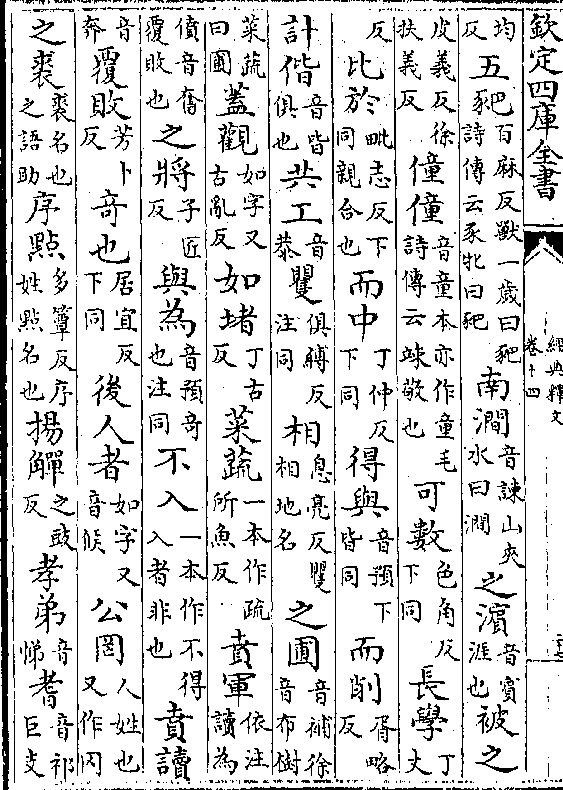 欽定四庫全書
經典釋文
卷十四
均反五豝百麻反獸一歲曰豝豕詩傳云豕牝曰豝南澗音諫山夾水曰澗之濱音賓涯也被之
皮義反徐扶義反僮僮音童本亦作童毛詩傳云竦敬也可數色角反下同長學丁丈
反比於毗志反下同親合也而中丁仲反下同得與音預下皆同而削胥略反
計偕音皆俱也共工音恭矍俱縛反注同相息亮反矍相地名之圃音補徐音布樹
菜蔬曰圃蓋觀如字又古亂反如堵丁古反菜蔬一本作疏所魚反賁軍依注讀為
僨音奮覆敗也之將子匠反與為音預奇也注同不入一本作不得入者非也賁讀
音奔覆敗芳卜反奇也居宜反下同後人者如字又音候公罔人姓也又作
之裘裘名也之語助序點多簟反序姓點名也揚觶之豉反孝弟音悌耆音祁巨支